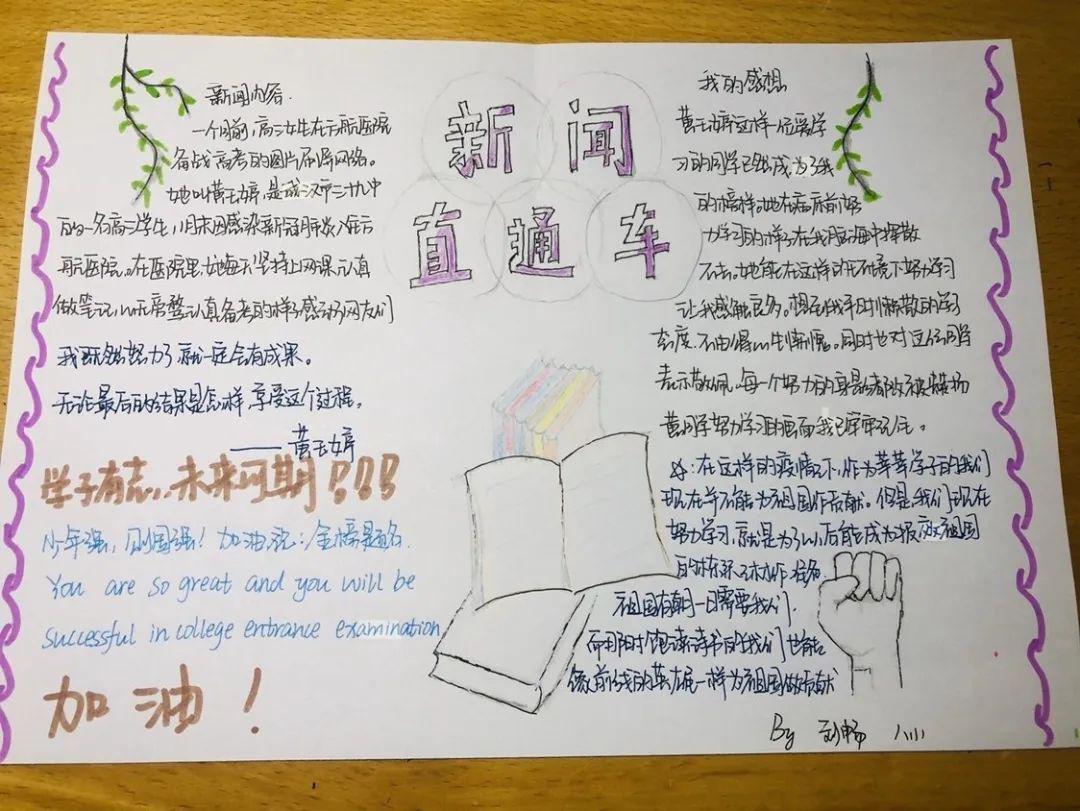 新闻
直通车
新闻内容.
一个月前,高三女生在方舱医院
备战高考的图片席卷网络。
她叫黄玉婷,是武汉市三十九中
的一名高三学生,1月末因感染新冠肺炎入住方
舱医院。在医院里她每天坚持上网课认真
做笔记,心无旁骛认真备考的样子感动了网友们
我既然努力了就一定会有成果。
无论最后的结果是怎样,享受这个过程。
——黄玉婷
学子有志,未来可期!!!
少年强,则国强!加油祝:金榜题名.
You are so great and you will be
successful in college entrance examination
加油!
我的感想
黄玉婷这样一位爱学
习的同学已然成为了我
的榜样,她在病床前努
力学习的样子在我脑海中挥散
不去,她能在这样的环境下努力学习
让我感触良多。想到我平时懒散的学习
态度.不由得心生惭愧。同时也对这位同学
表示敬佩。每一个努力的身影都改被
黄同学努力学习的画面我已牢牢记住。
在这样的疫情下,作为莘莘学子的我们
现在并不能为祖国作贡献。但是,我们现在
努力学习,就是为了以后能成为报效祖国
的
祖国有朝一日需要我们.
而那时饱读诗书的我们也能
像前线的英雄一样为祖国做贡献
By 刘畅